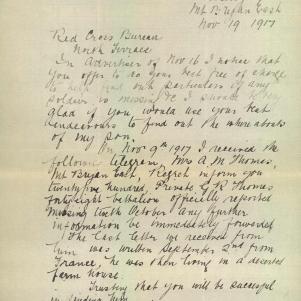 Mt Bryan East
Nov 19 1917
Red Cross Bureau
North Terrace
In Advertiser of Nov 16 I notice that
you offer to do your best free of charge
to help find out particulars of any
soldier so missing &c I should be
glad if you would use your best
Endeavours to find out the whereabouts
of my son.
On Nov 9th 1917 I received the
following telegram, Mrs A. M. Thomas,
Mt Bryan East, Regret inform you
twentyfive hundred, Private G. R. Thomas
fortyeight battalion officially reported
Missing tenth October any further
information be immediately forwarded
The last letter we received from
him was written September 2nd from
France, he was then living in a deserted
farm house.
Trusting that you will be sucessful
in finding him